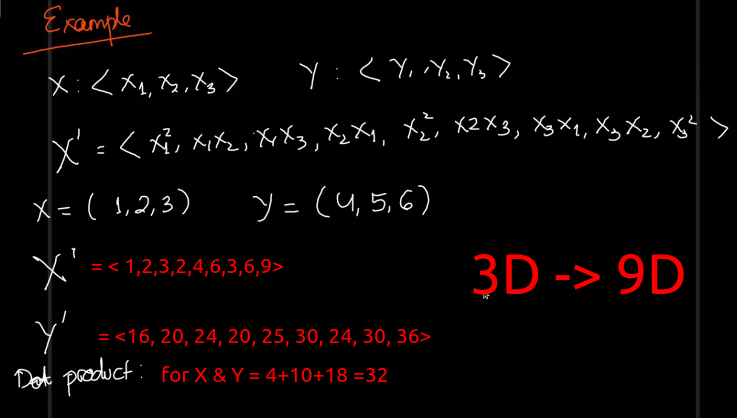 Example
X : < x₁, x₂, x₃ > Y : < Y₁, Y₂, Y₃ >
X' = < x₁², x₁x₂, x₁x₃, x₂x₁, x₂², x2x3, x₃x₁, x₃x₂, x₃² >
X = ( 1, 2, 3 ) Y = ( 4, 5, 6 )
X' = < 1,2,3,2,4,6,3,6,9>
3D -> 9D
Y' = <16, 20, 24, 20, 25, 30, 24, 30, 36>
Dot product : for X & Y = 4+10+18 =32